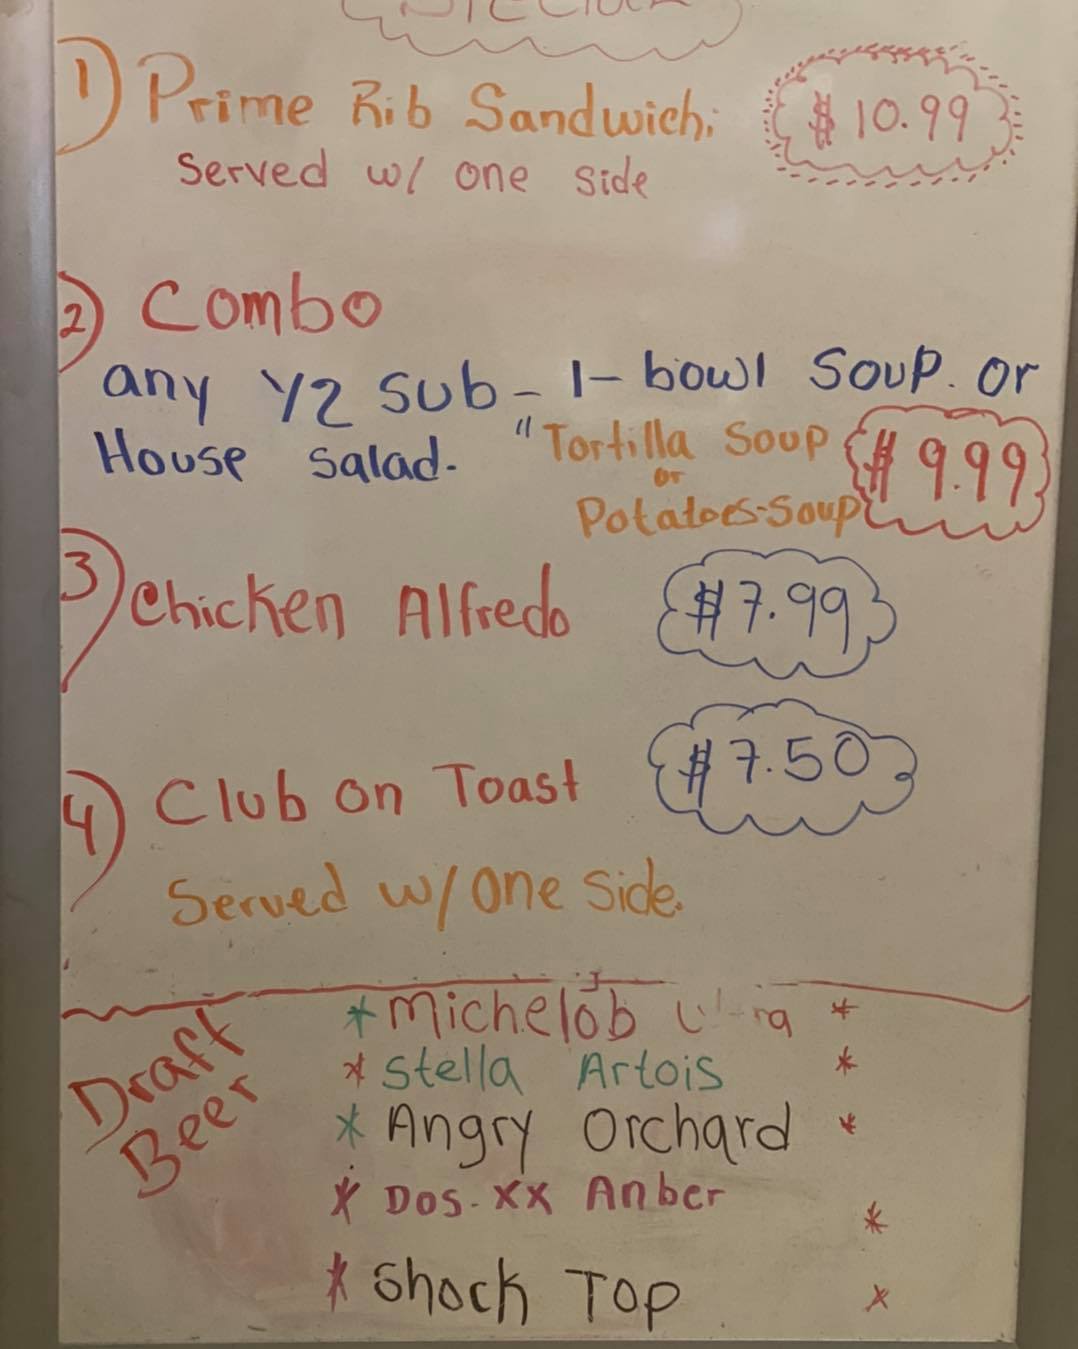 1) Prime Rib Sandwich.
$10.99
Served w/ one side
2) Combo
any 1/2 Sub - 1- bowl Soup. or
House salad. "Tortilla Soup
or
Potatoes-Soup
$9.99
3) Chicken Alfredo
$7.99
4) Club on Toast
$7.50
Served w/ One Side.
Draft
Beer
* Michelob *
* Stella Artois *
* Angry Orchard *
* Dos-XX Anber *
* Shock Top *